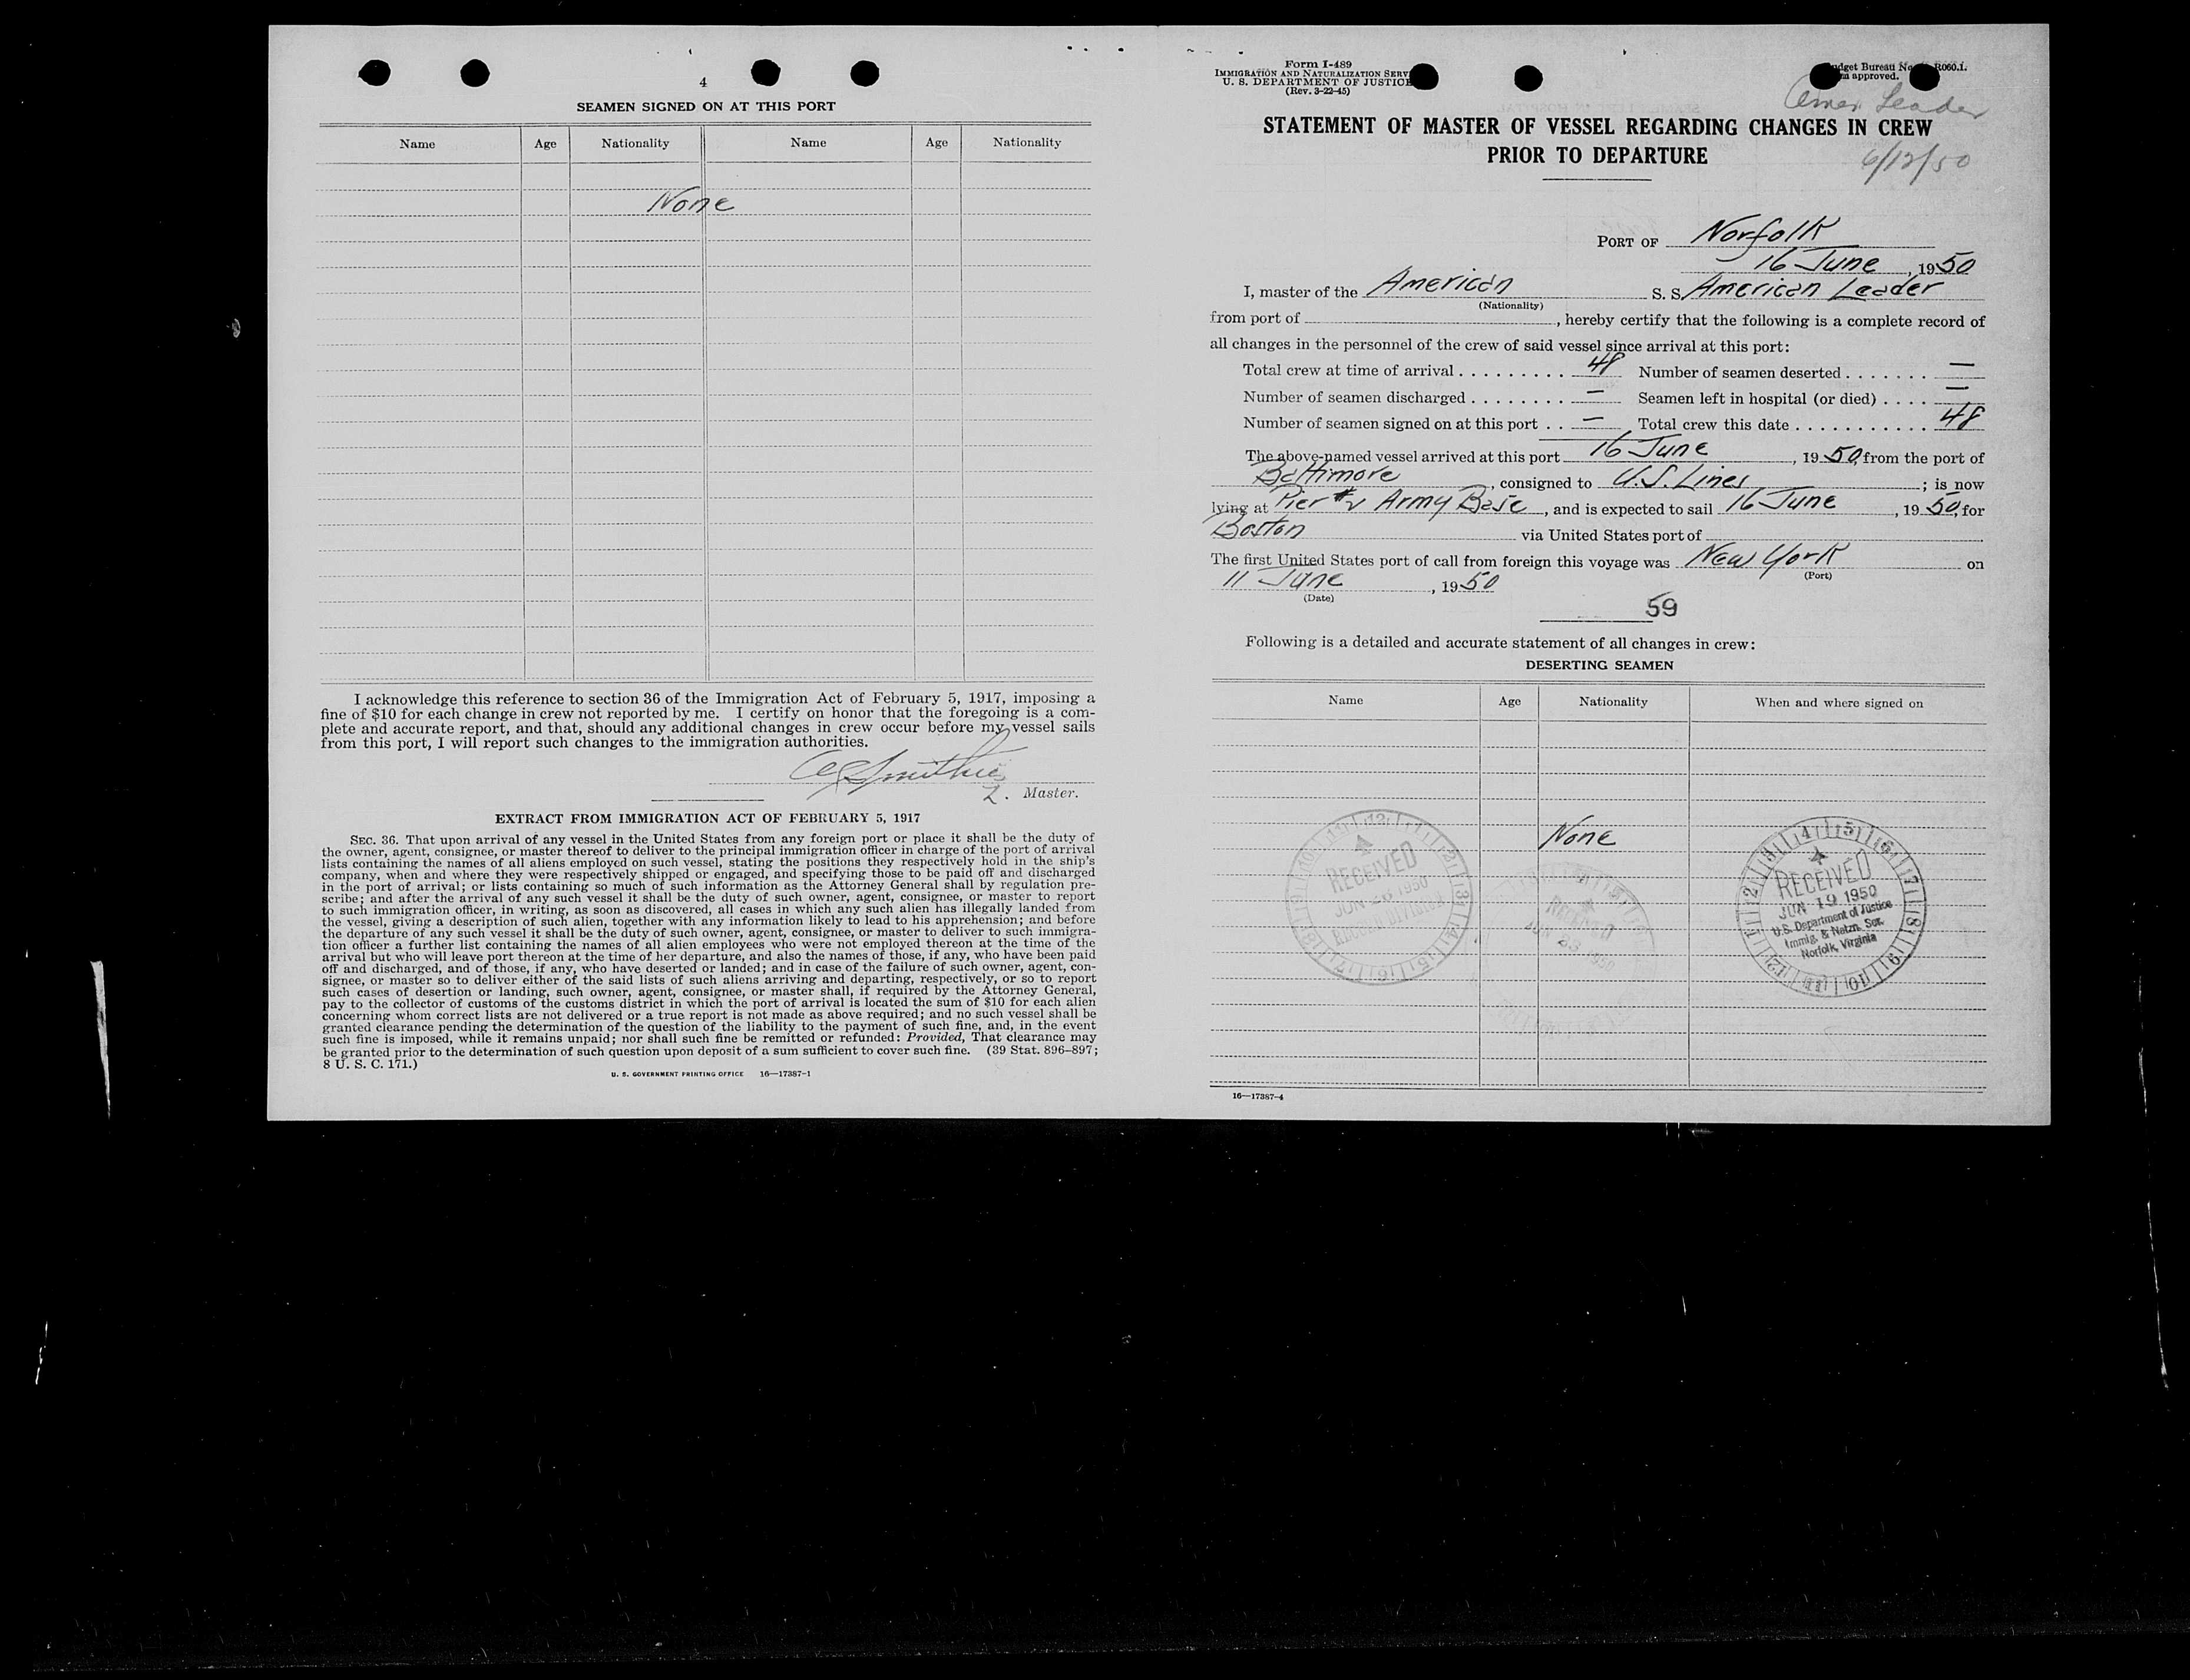 4
SEAMEN SIGNED ON AT THIS PORT
Name Age Nationality Name Age Nationality
None
I acknowledge this reference to section 36 of the Immigration Act of February 5, 1917, imposing a
fine of $10 for each change in crew not reported by me. I certify on honor that the foregoing is a com-
plete and accurate report, and that, should any additional changes in crew occur before my vessel sails
from this port, I will report such changes to the immigration authorities.
Master.
EXTRACT FROM IMMIGRATION ACT OF FEBRUARY 5, 1917
SEC. 36. That upon arrival of any vessel in the United States from any foreign port or place it shall be the duty of
the owner, agent, consignee, or master thereof to deliver to the principal immigration officer in charge of the port of arrival
lists containing the names of all aliens employed on such vessel, stating the positions they respectively hold in the ship's
company, when and where they were respectively shipped or engaged, and specifying those to be paid off and discharged
in the port of arrival; or lists containing so much of such information as the Attorney General shall by regulation pre-
scribe; and after the arrival of any such vessel it shall be the duty of such owner, agent, consignee, or master to report
to such immigration officer, in writing, as soon as discovered, all cases in which any such alien has illegally landed from
the vessel, giving a description of such alien, together with any information likely to lead to his apprehension; and before
the departure of any such vessel it shall be the duty of such owner, agent, consignee, or master to deliver to such immigra-
tion officer a further list containing the names of all alien employees who were not employed thereon at the time of the
arrival but who will leave port thereon at the time of her departure, and also the names of those, if any, who have been paid
off and discharged, and of those, if any, who have deserted or landed; and in case of the failure of such owner, agent, con-
signee, or master so to deliver either of the said lists of such aliens arriving and departing, respectively, or so to report
such cases of desertion or landing, such owner, agent, consignee, or master shall, if required by the Attorney General,
pay to the collector of customs of the customs district in which the port of arrival is located the sum of $10 for each alien
concerning whom correct lists are not delivered or a true report is not made as above required; and no such vessel shall be
granted clearance pending the determination of the question of the liability to the payment of such fine, and, in the event
such fine is imposed, while it remains unpaid; nor shall such fine be remitted or refunded: Provided, That clearance may
be granted prior to the determination of such question upon deposit of a sum sufficient to cover such fine. (39 Stat. 896–897;
8 U. S. C. 171.)
U. S. GOVERNMENT PRINTING OFFICE 16—17387-1
Form I-489
IMMIGRATION AND NATURALIZATION SERV
U. S. DEPARTMENT OF JUSTICE
(Rev. 3-22-45)
dget Bureau No. R060.1.
approved.
Amer. Leader
STATEMENT OF MASTER OF VESSEL REGARDING CHANGES IN CREW
PRIOR TO DEPARTURE
6/12/50
PORT OF Norfolk
16 June, 1950
I, master of the American S. S. American Leader
(Nationality)
from port of , hereby certify that the following is a complete record of
all changes in the personnel of the crew of said vessel since arrival at this port:
Total crew at time of arrival . . . . . . . . . 48 Number of seamen deserted . . . . . . . —
Number of seamen discharged . . . . . . . . — Seamen left in hospital (or died) . . . . —
Number of seamen signed on at this port . . — Total crew this date . . . . . . . . . . . 48
The above-named vessel arrived at this port 16 June, 1950, from the port of
Baltimore, consigned to U.S. Lines; is now
lying at Pier #2 Army Base, and is expected to sail 16 June, 1950, for
Boston via United States port of
The first United States port of call from foreign this voyage was New York on
(Port)
11 June, 1950
(Date)
59
Following is a detailed and accurate statement of all changes in crew:
DESERTING SEAMEN
Name Age Nationality When and where signed on
None
RECEIVED
JUN 26 1950
RECEIVED
JUN 23 1950
RECEIVED
JUN 19 1950
U.S. Department of Justice
Immig. & Natzn. Ser.
Norfolk, Virginia
16—17387-4